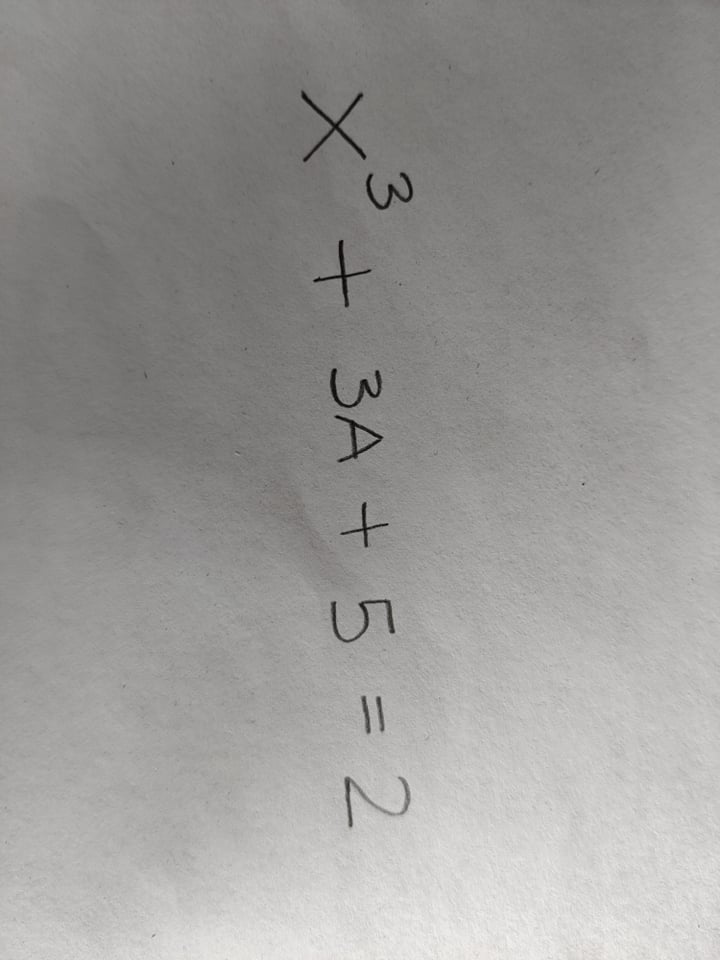 X³ + 3A + 5 = 2